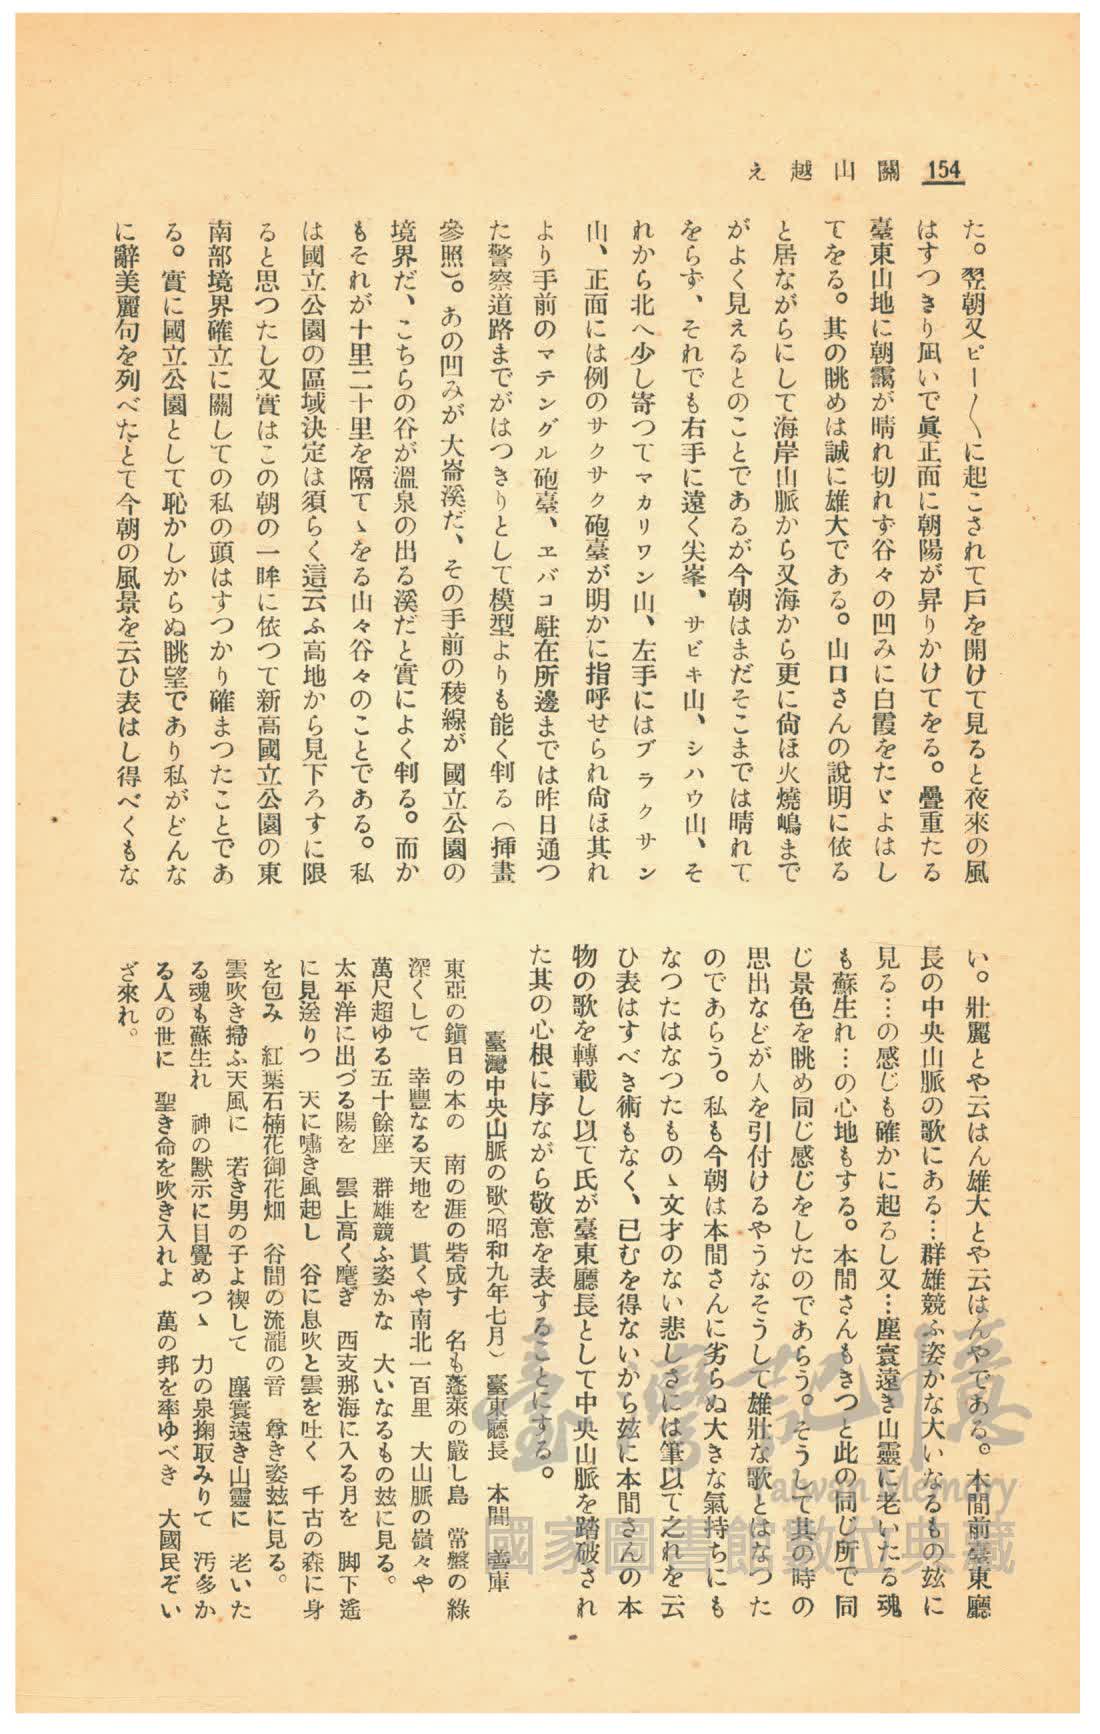 154 關山越え
た。翌朝又ピー〳〵に起こされて戸を開けて見ると夜來の風
はすつきり凪いで眞正面に朝陽が昇りかけてをる。疊重たる
臺東山地に朝靄が晴れ切れず谷々の凹みに白霞をたゞよはし
てをる。其の眺めは誠に雄大である。山口さんの說明に依る
と居ながらにして海岸山脈から又海から更に尙ほ火燒嶋まで
がよく見えるとのことであるが今朝はまだそこまでは晴れて
をらず、それでも右手に遠く尖峯、サビキ山、シハウ山、そ
れから北へ少し寄つてマカリワン山、左手にはブラクサン
山、正面には例のサクサク砲臺が明かに指呼せられ尙ほ其れ
より手前のマテングル砲臺、エバコ駐在所邊までは昨日通つ
た警察道路までがはつきりとして模型よりも能く判る（揷畫
參照）。あの凹みが大崙溪だ、その手前の稜線が國立公園の
境界だ、こちらの谷が溫泉の出る溪だと實によく判る。而か
もそれが十里二十里を隔てゝをる山々谷々のことである。私
は國立公園の區域決定は須らく這云ふ高地から見下ろすに限
ると思つたし又實はこの朝の一眸に依つて新高國立公園の東
南部境界確立に關しての私の頭はすつかり確まつたことであ
る。實に國立公園として恥かしからぬ眺望であり私がどんな
に辭美麗句を列べたとて今朝の風景を云ひ表はし得べくもな
い。壯麗とや云はん雄大とや云はんやである。本間前臺東廳
長の中央山脈の歌にある…群雄競ふ姿かな大いなるもの玆に
見る…の感じも確かに起るし又…塵寰遠き山靈に老いたる魂
も蘇生れ…の心地もする。本間さんもきつと此の同じ所で同
じ景色を眺め同じ感じをしたのであらう。そうして其の時の
思出などが人を引付けるやうなそうして雄壯な歌とはなつた
のであらう。私も今朝は本間さんに劣らぬ大きな氣持ちにも
なつたはなつたものゝ文才のない悲しさには筆以て之れを云
ひ表はすべき術もなく、已むを得ないから玆に本間さんの本
物の歌を轉載し以て氏が臺東廳長として中央山脈を踏破され
た其の心根に序ながら敬意を表することにする。
臺灣中央山脈の歌（昭和九年七月）臺東廳長 本間 善庫
東亞の鎭日の本の 南の涯の砦成す 名も蓬萊の嚴し島 常盤の綠
深くして 幸豐なる天地を 貫くや南北一百里 大山脈の嶺々や
萬尺超ゆる五十餘座 群雄競ふ姿かな 大いなるもの玆に見る。
太平洋に出づる陽を 雲上高く麾ぎ 西支那海に入る月を 脚下遙
に見送りつ 天に嘯き風起し 谷に息吹と雲を吐く 千古の森に身
を包み 紅葉石楠花御花畑 谷間の流瀧の音 尊き姿玆に見る。
雲吹き掃ふ天風に 若き男の子よ禊して 塵寰遠き山靈に 老いた
る魂も蘇生れ 神の默示に目覺めつゝ 力の泉掬取みりて 汚多か
る人の世に 聖き命を吹き入れよ 萬の邦を率ゆべき 大國民ぞい
ざ來れ。
臺灣記憶
Taiwan Memory
國家圖書館數位典藏